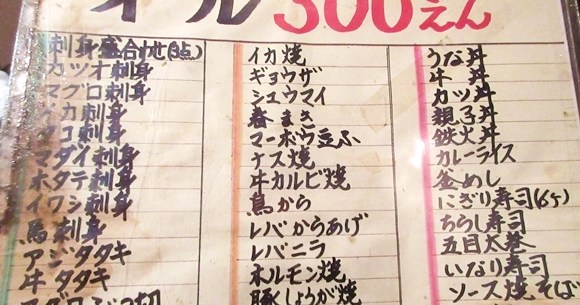 オール300えん
刺身盛合わせ(3点)
カツオ刺身
マグロ刺身
イカ刺身
タコ刺身
マダイ刺身
ホタテ刺身
イワシ刺身
馬刺身
アジタタキ
牛タタキ
マグロぶつ切
イカ焼
ギョウザ
シュウマイ
春まき
マーボウ豆ふ
ナス焼
牛カルビ焼
鳥から
レバからあげ
レバニラ
ホルモン焼
豚しょうが焼
うな丼
牛丼
カツ丼
親子丼
鉄火丼
カレーライス
釜めし
にぎり寿司(6ヶ)
ちらし寿司
五目太巻
いなり寿司
ソース焼そば